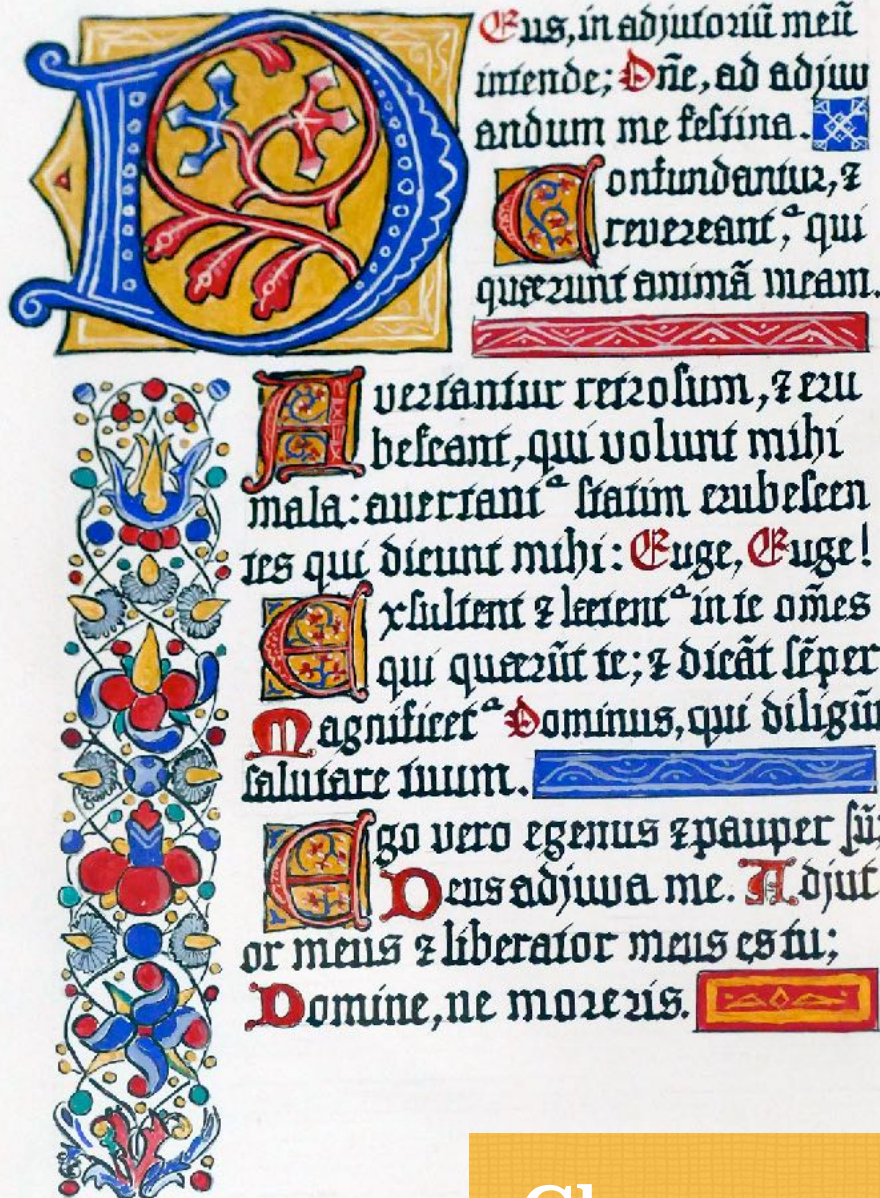 Deus, in adjutoriū meū
intende; Dñe, ad adjuv
andum me festina.
Confundantur, ⁊
revereantᵃ, qui
quærunt animā meam.
Avertantur retrosum, ⁊ eru
bescant, qui volunt mihi
mala: avertantᵃ statim erubescen
tes qui dicunt mihi: Euge, Euge!
Exsultent ⁊ lætentᵃ in te om̄es
qui quærūt te; ⁊ dicāt sēper
Magnificetᵃ Dominus, qui diligūt
salutare tuum.
Ego vero egenus ⁊ pauper sū;
Deus adjuva me. Adjut
or meus ⁊ liberator meus es tu;
Domine, ne moreris.